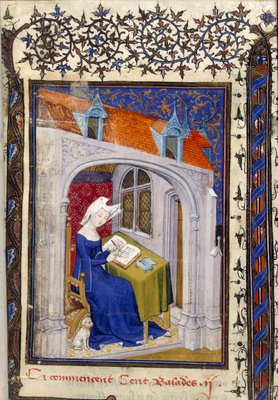 Ci commencent Cent Balades .ij.